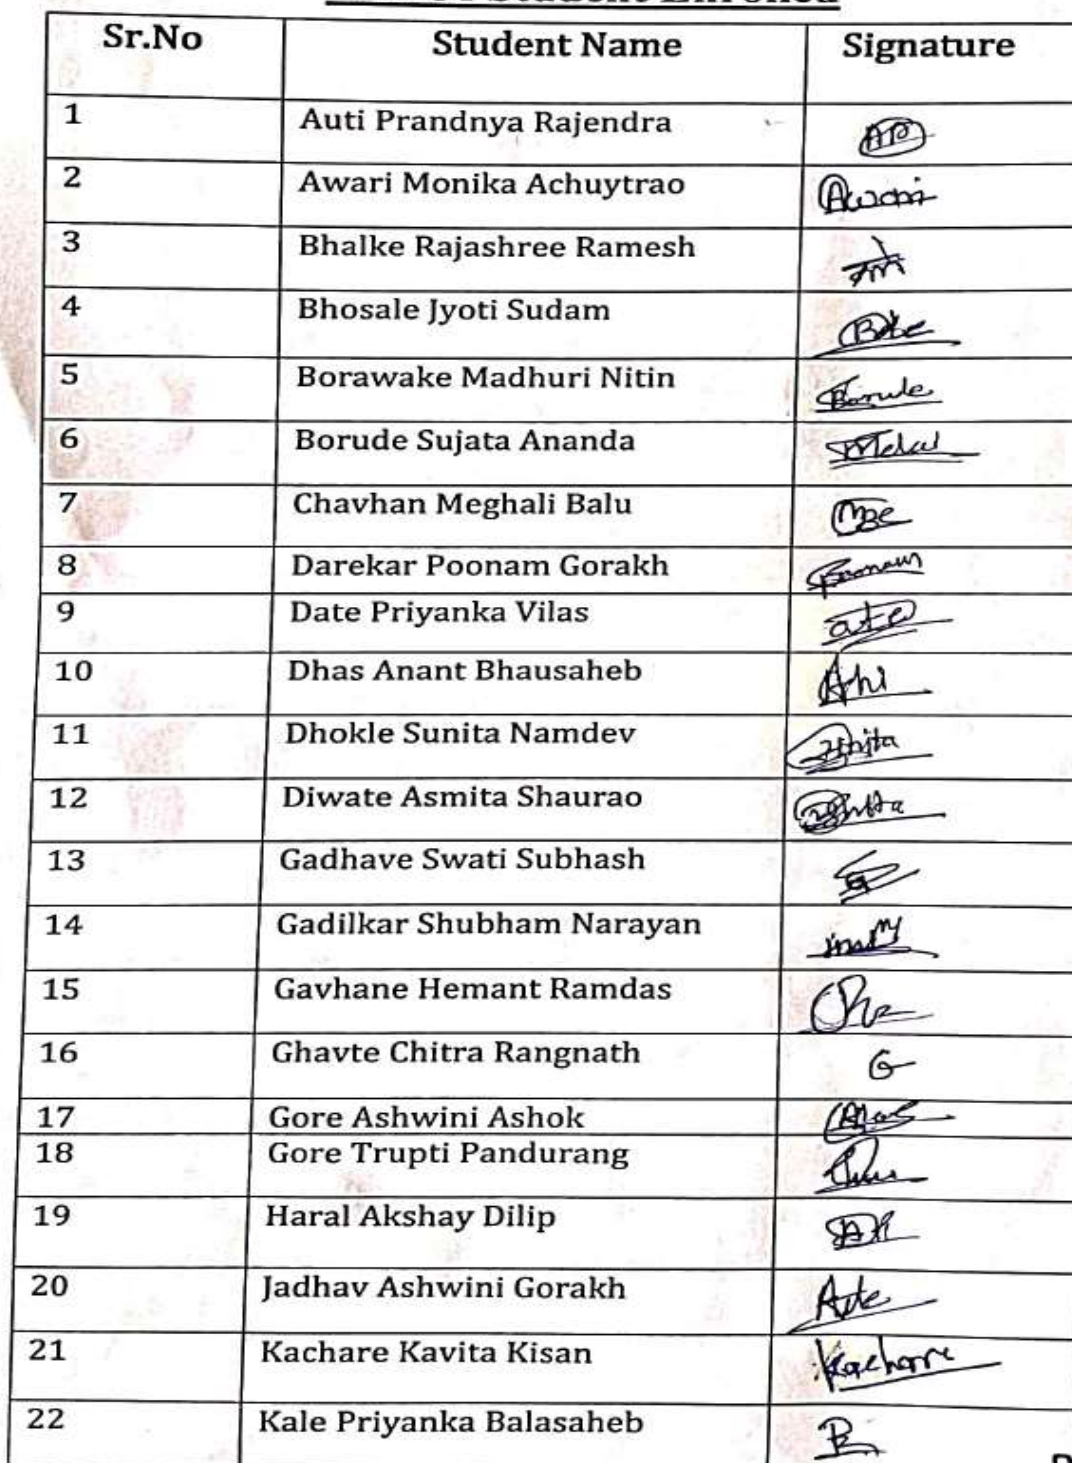 Student Enrolled
Sr.No Student Name Signature
1 Auti Prandnya Rajendra AP
2 Awari Monika Achuytrao Awari
3 Bhalke Rajashree Ramesh
4 Bhosale Jyoti Sudam
5 Borawake Madhuri Nitin
6 Borude Sujata Ananda
7 Chavhan Meghali Balu
8 Darekar Poonam Gorakh
9 Date Priyanka Vilas
10 Dhas Anant Bhausaheb
11 Dhokle Sunita Namdev
12 Diwate Asmita Shaurao
13 Gadhave Swati Subhash
14 Gadilkar Shubham Narayan
15 Gavhane Hemant Ramdas
16 Ghavte Chitra Rangnath G
17 Gore Ashwini Ashok
18 Gore Trupti Pandurang
19 Haral Akshay Dilip
20 Jadhav Ashwini Gorakh
21 Kachare Kavita Kisan Kachare
22 Kale Priyanka Balasaheb